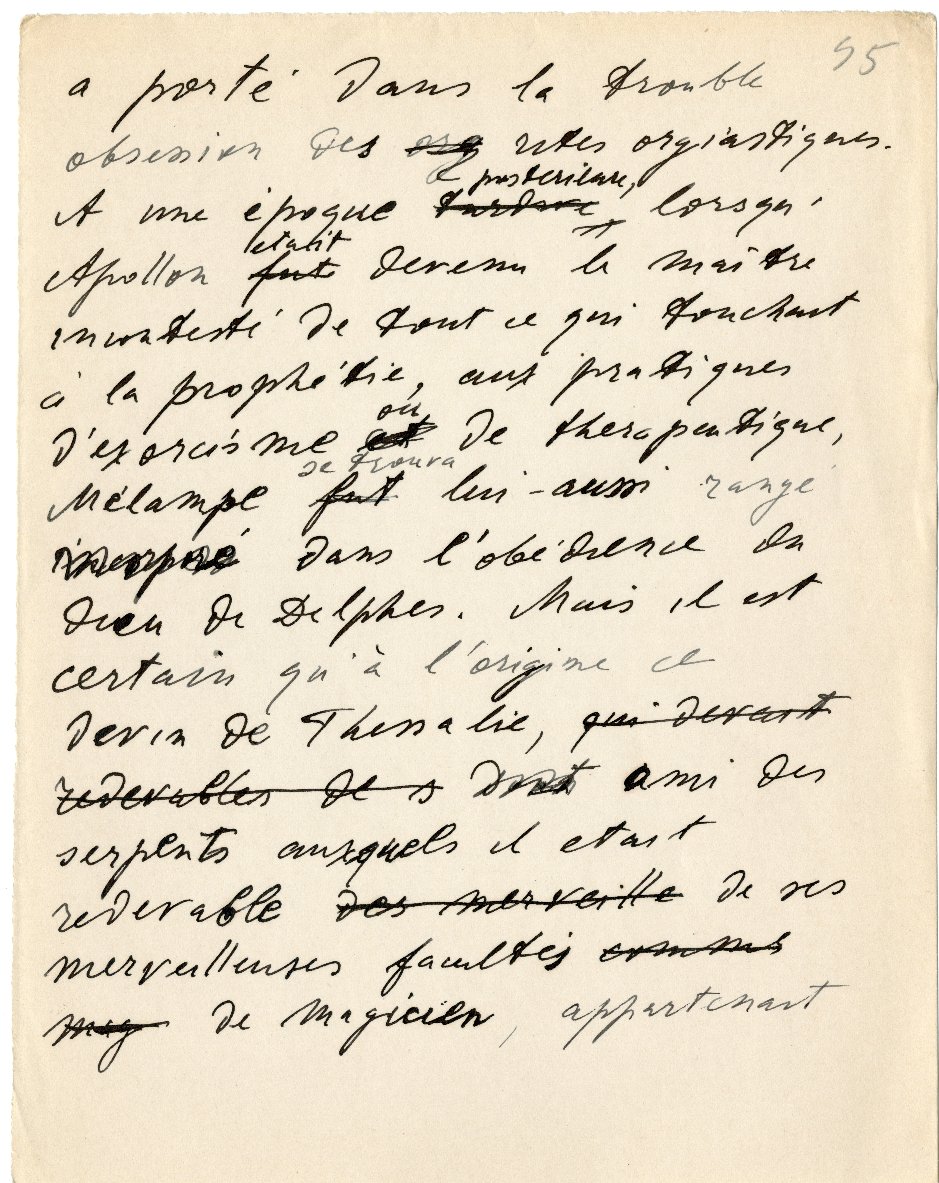 95
a porté dans la trouble
obsession des org rites orgiastiques.
A une époque tardive postérieure, lorsqu'
Apollon fut etait devenu le maître
incontesté de tout ce qui touchait
à la prophétie, aux pratiques
d'exorcisme et ou de therapeutique,
Mélampe fut se trouva lui-aussi rangé
incorporé dans l'obédience du
dieu de Delphes. Mais il est
certain qu'à l'origine ce
devin de Thessalie, qui devait
redevables de s ami des
serpents auxquels il etait
redevable des merveille de ses
merveilleuses facultés comme
mag de magicien, appartenait